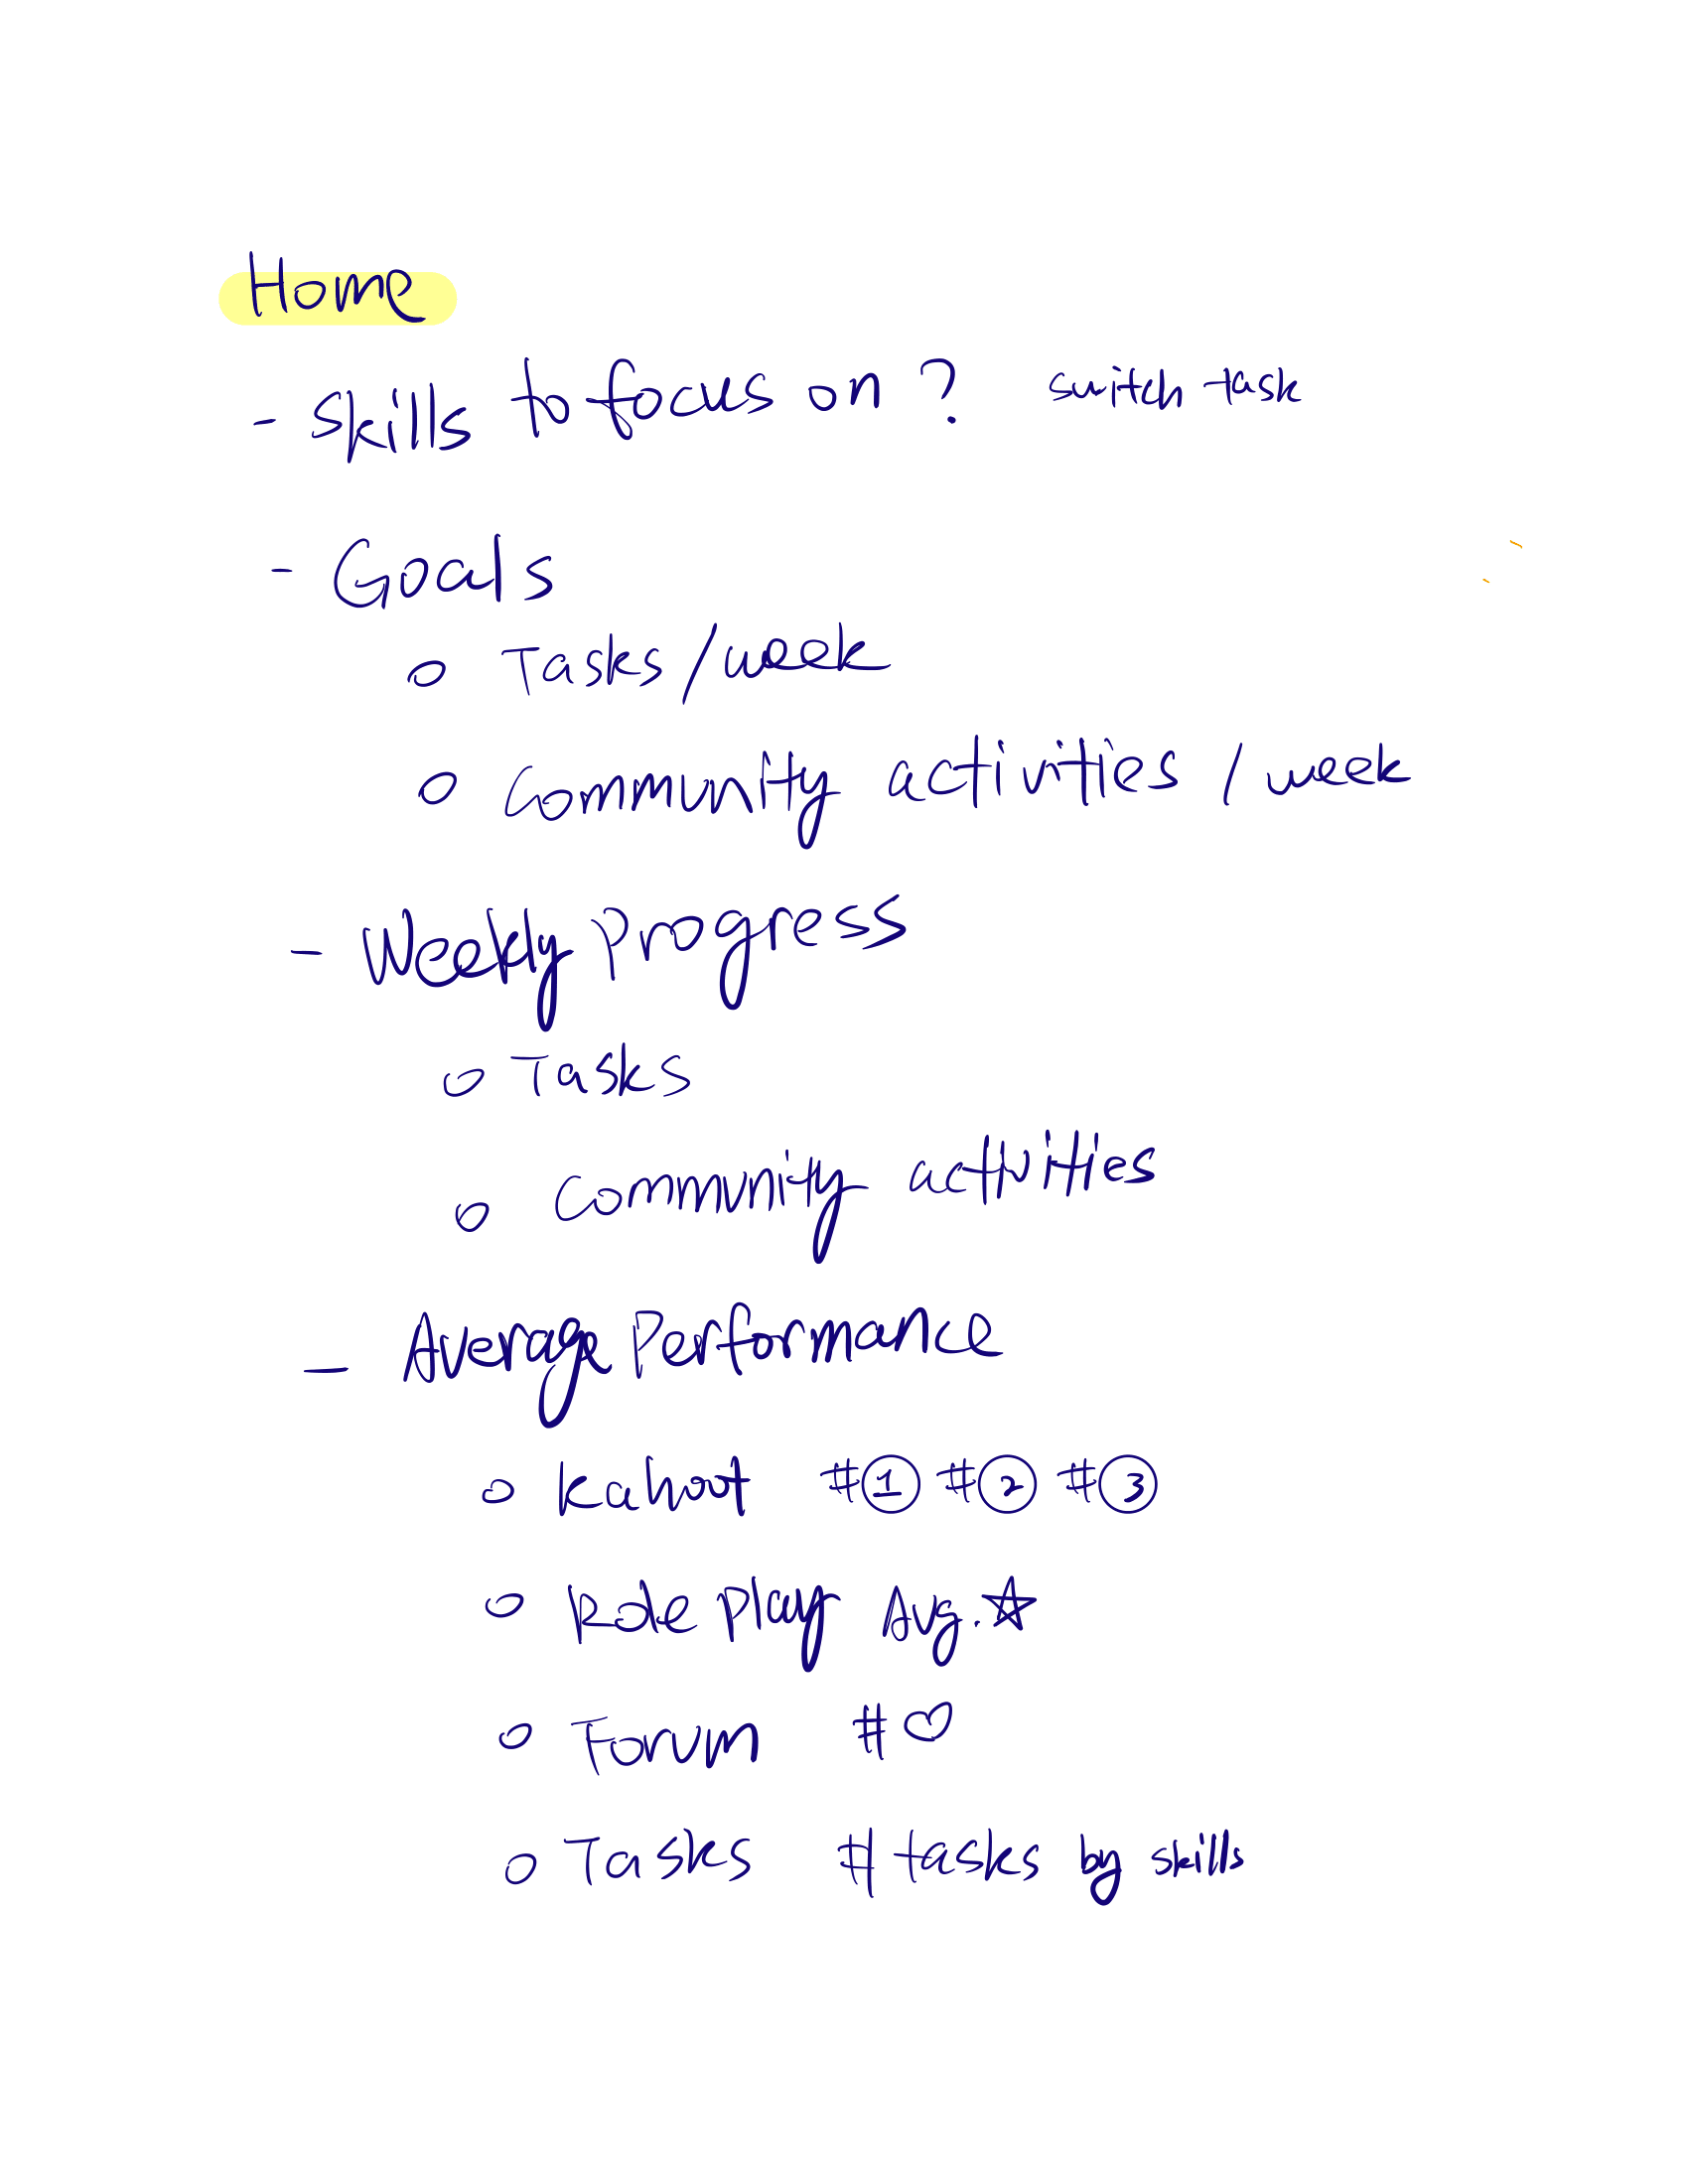 Home
- Skills to focus on ? switch task
- Goals
o Tasks / week
o Community activities / week
- Weekly Progress
o Tasks
o Community activities
- Average Performance
o Kahoot #① #② #③
o Role play Avg. ☆
o Forum #♡
o Tasks # tasks by skills